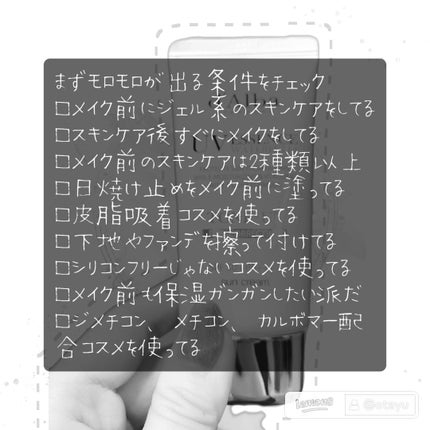 まずモロモロが出る条件をチェック
□メイク前にジェル系のスキンケアをしてる
□スキンケア後すぐにメイクをしてる
□メイク前のスキンケアは2種類以上
□日焼け止めをメイク前に塗ってる
□皮脂吸着コスメを使ってる
□下地やファンデを擦って付けてる
□シリコンフリーじゃないコスメを使ってる
□メイク前も保湿ガンガンしたい派だ
□ジメチコン、メチコン、カルボマー配
合コスメを使ってる
LIPS
@otayu